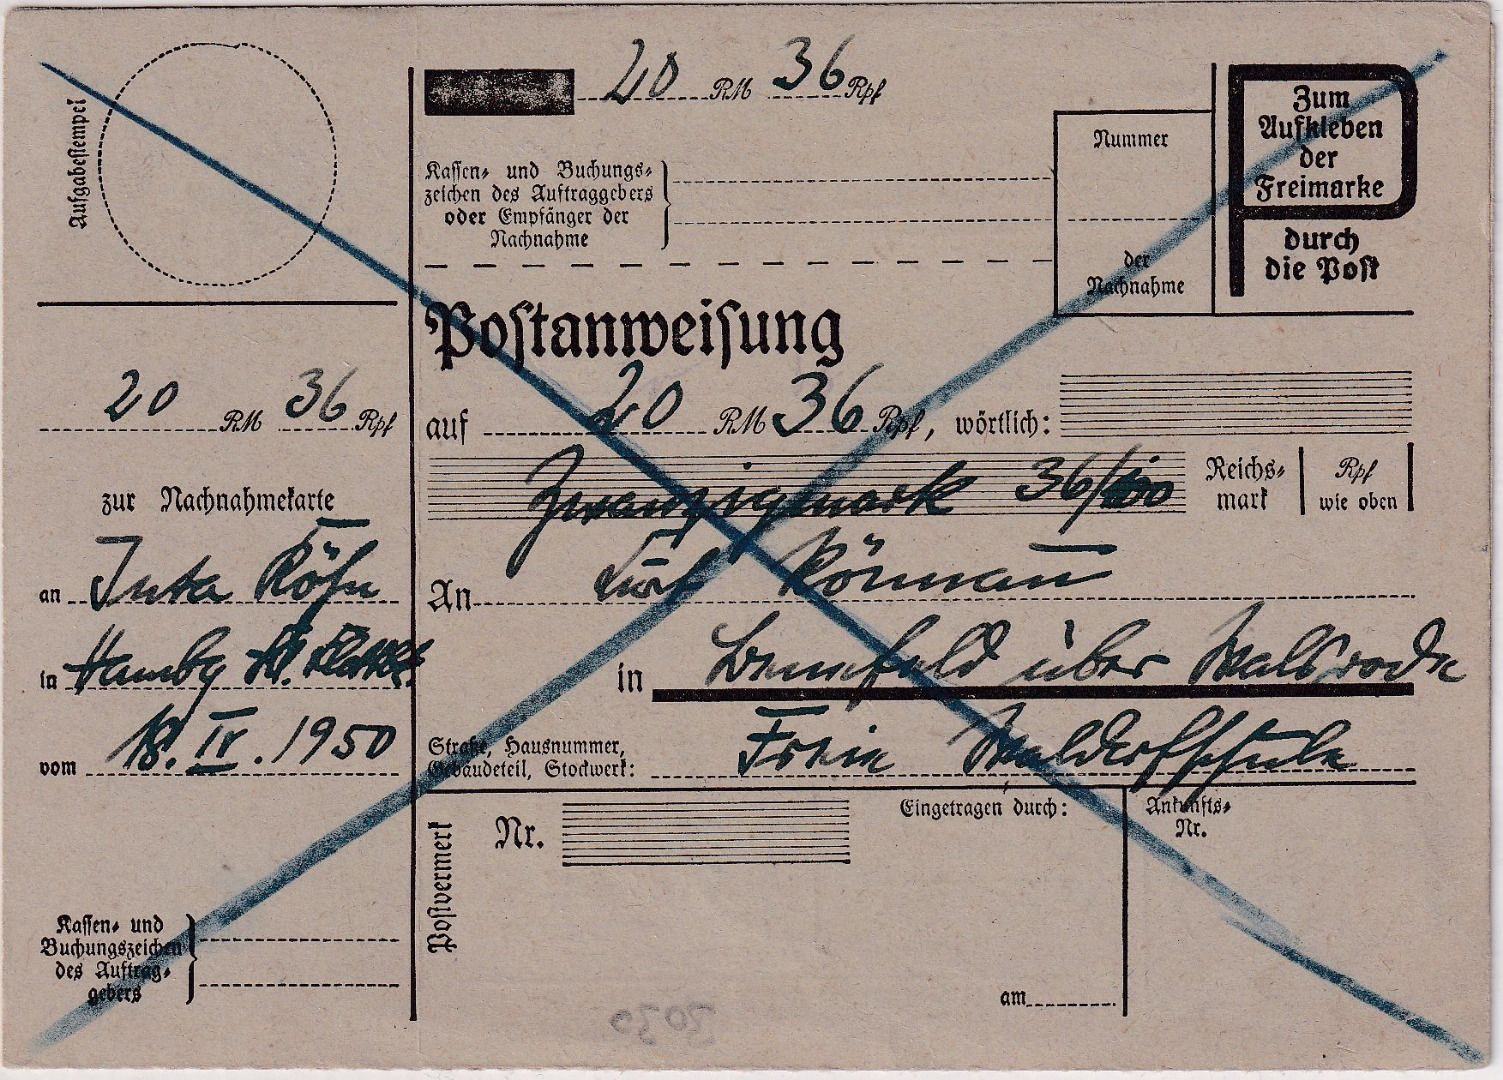 Aufgabestempel
20 RM 36 Rpf
zur Nachnahmekarte
an Juta
in Hambg
vom 18. IV. 1950
Kassen- und
Buchungszeichen
des Auftrag-
gebers
20 RM 36 Rpf
Kassen- und Buchungs-
zeichen des Auftraggebers
oder Empfänger der
Nachnahme
Nummer
der
Nachnahme
Zum
Aufkleben
der
Freimarke
durch
die Post
Postanweisung
auf 20 RM 36 Rpf, wörtlich:
Zwanzigmark 36/100
Reichs-
mark
Rpf
wie oben
An
in Bennefeld über Walsrode
Straße, Hausnummer,
Gebäudeteil, Stockwerk:
Freie Waldorfschule
Postvermerk
Nr.
Eingetragen durch:
Ankunfts-
Nr.
am